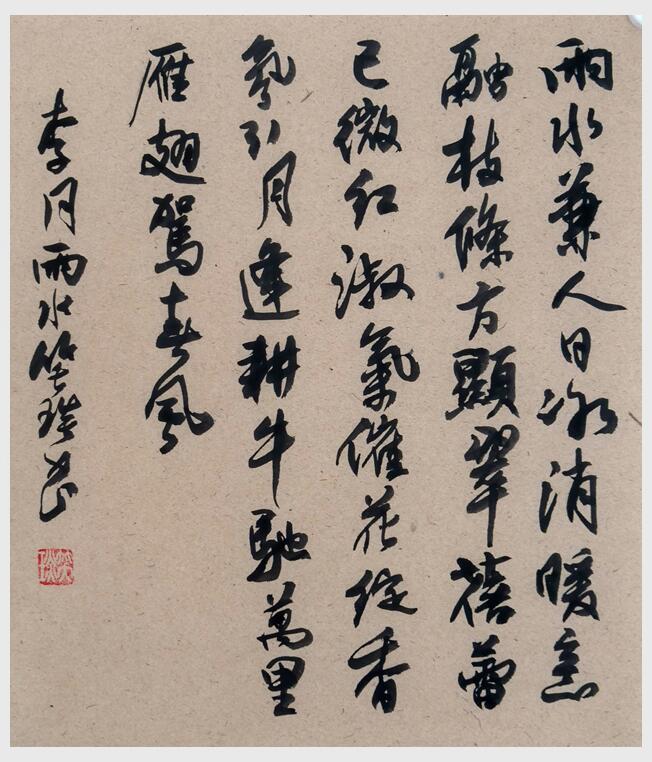 雨水兼人日冰消暖意
融枝條方顯翠蓓蕾
已微紅淑氣催花綻香
氛引月逢耕牛馳萬里
雁翅駕春風
李月雨水笠琰书